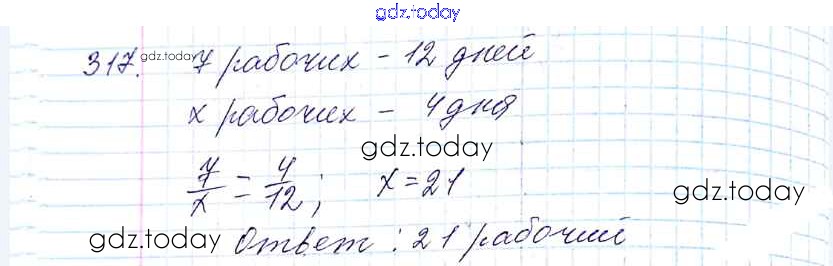 gdz.today
317. gdz.today 7 рабочих - 12 дней
х рабочих - 4 дня
gdz.today
7/х = 4/12; х = 21
gdz.today
gdz.today Ответ: 21 рабочий